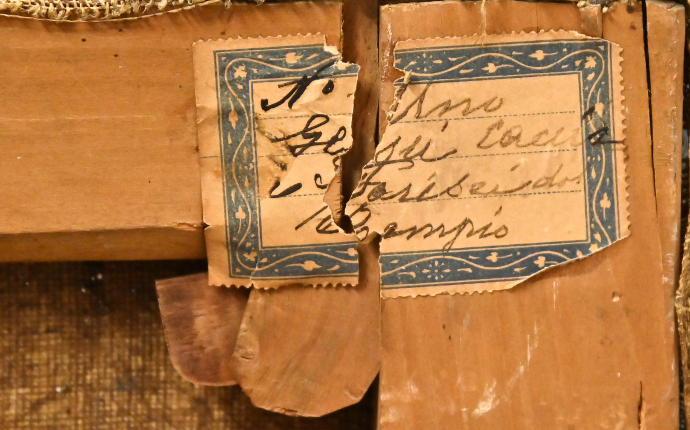 No Uno
Gesu Caccia
i Farisei dal
Tempio